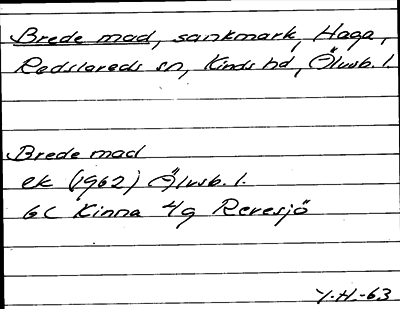 Brede mad, sankmark, Haga,
Redslareds sn, Kinds hd, Älvsb. l.
Brede mad
ek (1962) Älvsb. l.
6C Kinna 4g Revesjö
Y.H.-63